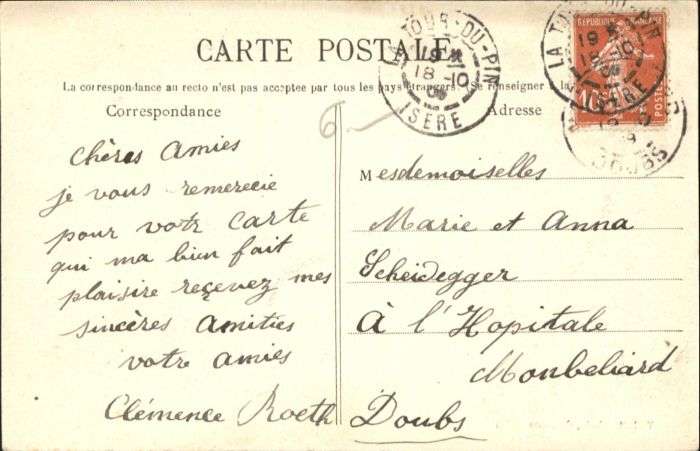 CARTE POSTALE
La correspondance au recto n'est pas acceptée par tous les pays étrangers. Se renseigner à la
Correspondance
Adresse
6
chères amies
je vous remerecie
pour votr carte
qui ma bien fait
plaisire reçevez mes
sincères amitiés
votre amies
Clémence Roeth
Mesdemoiselles
Marie et Anna
Scheidegger
À l'Hopitale
Monbeliard
Doubs
LA TOUR-DU-PIN
18-10
ISÈRE
RÉPUBLIQUE FRANÇAISE
10
POSTES
LA TOUR-DU-PIN
18-10
ISÈRE
DOUBS